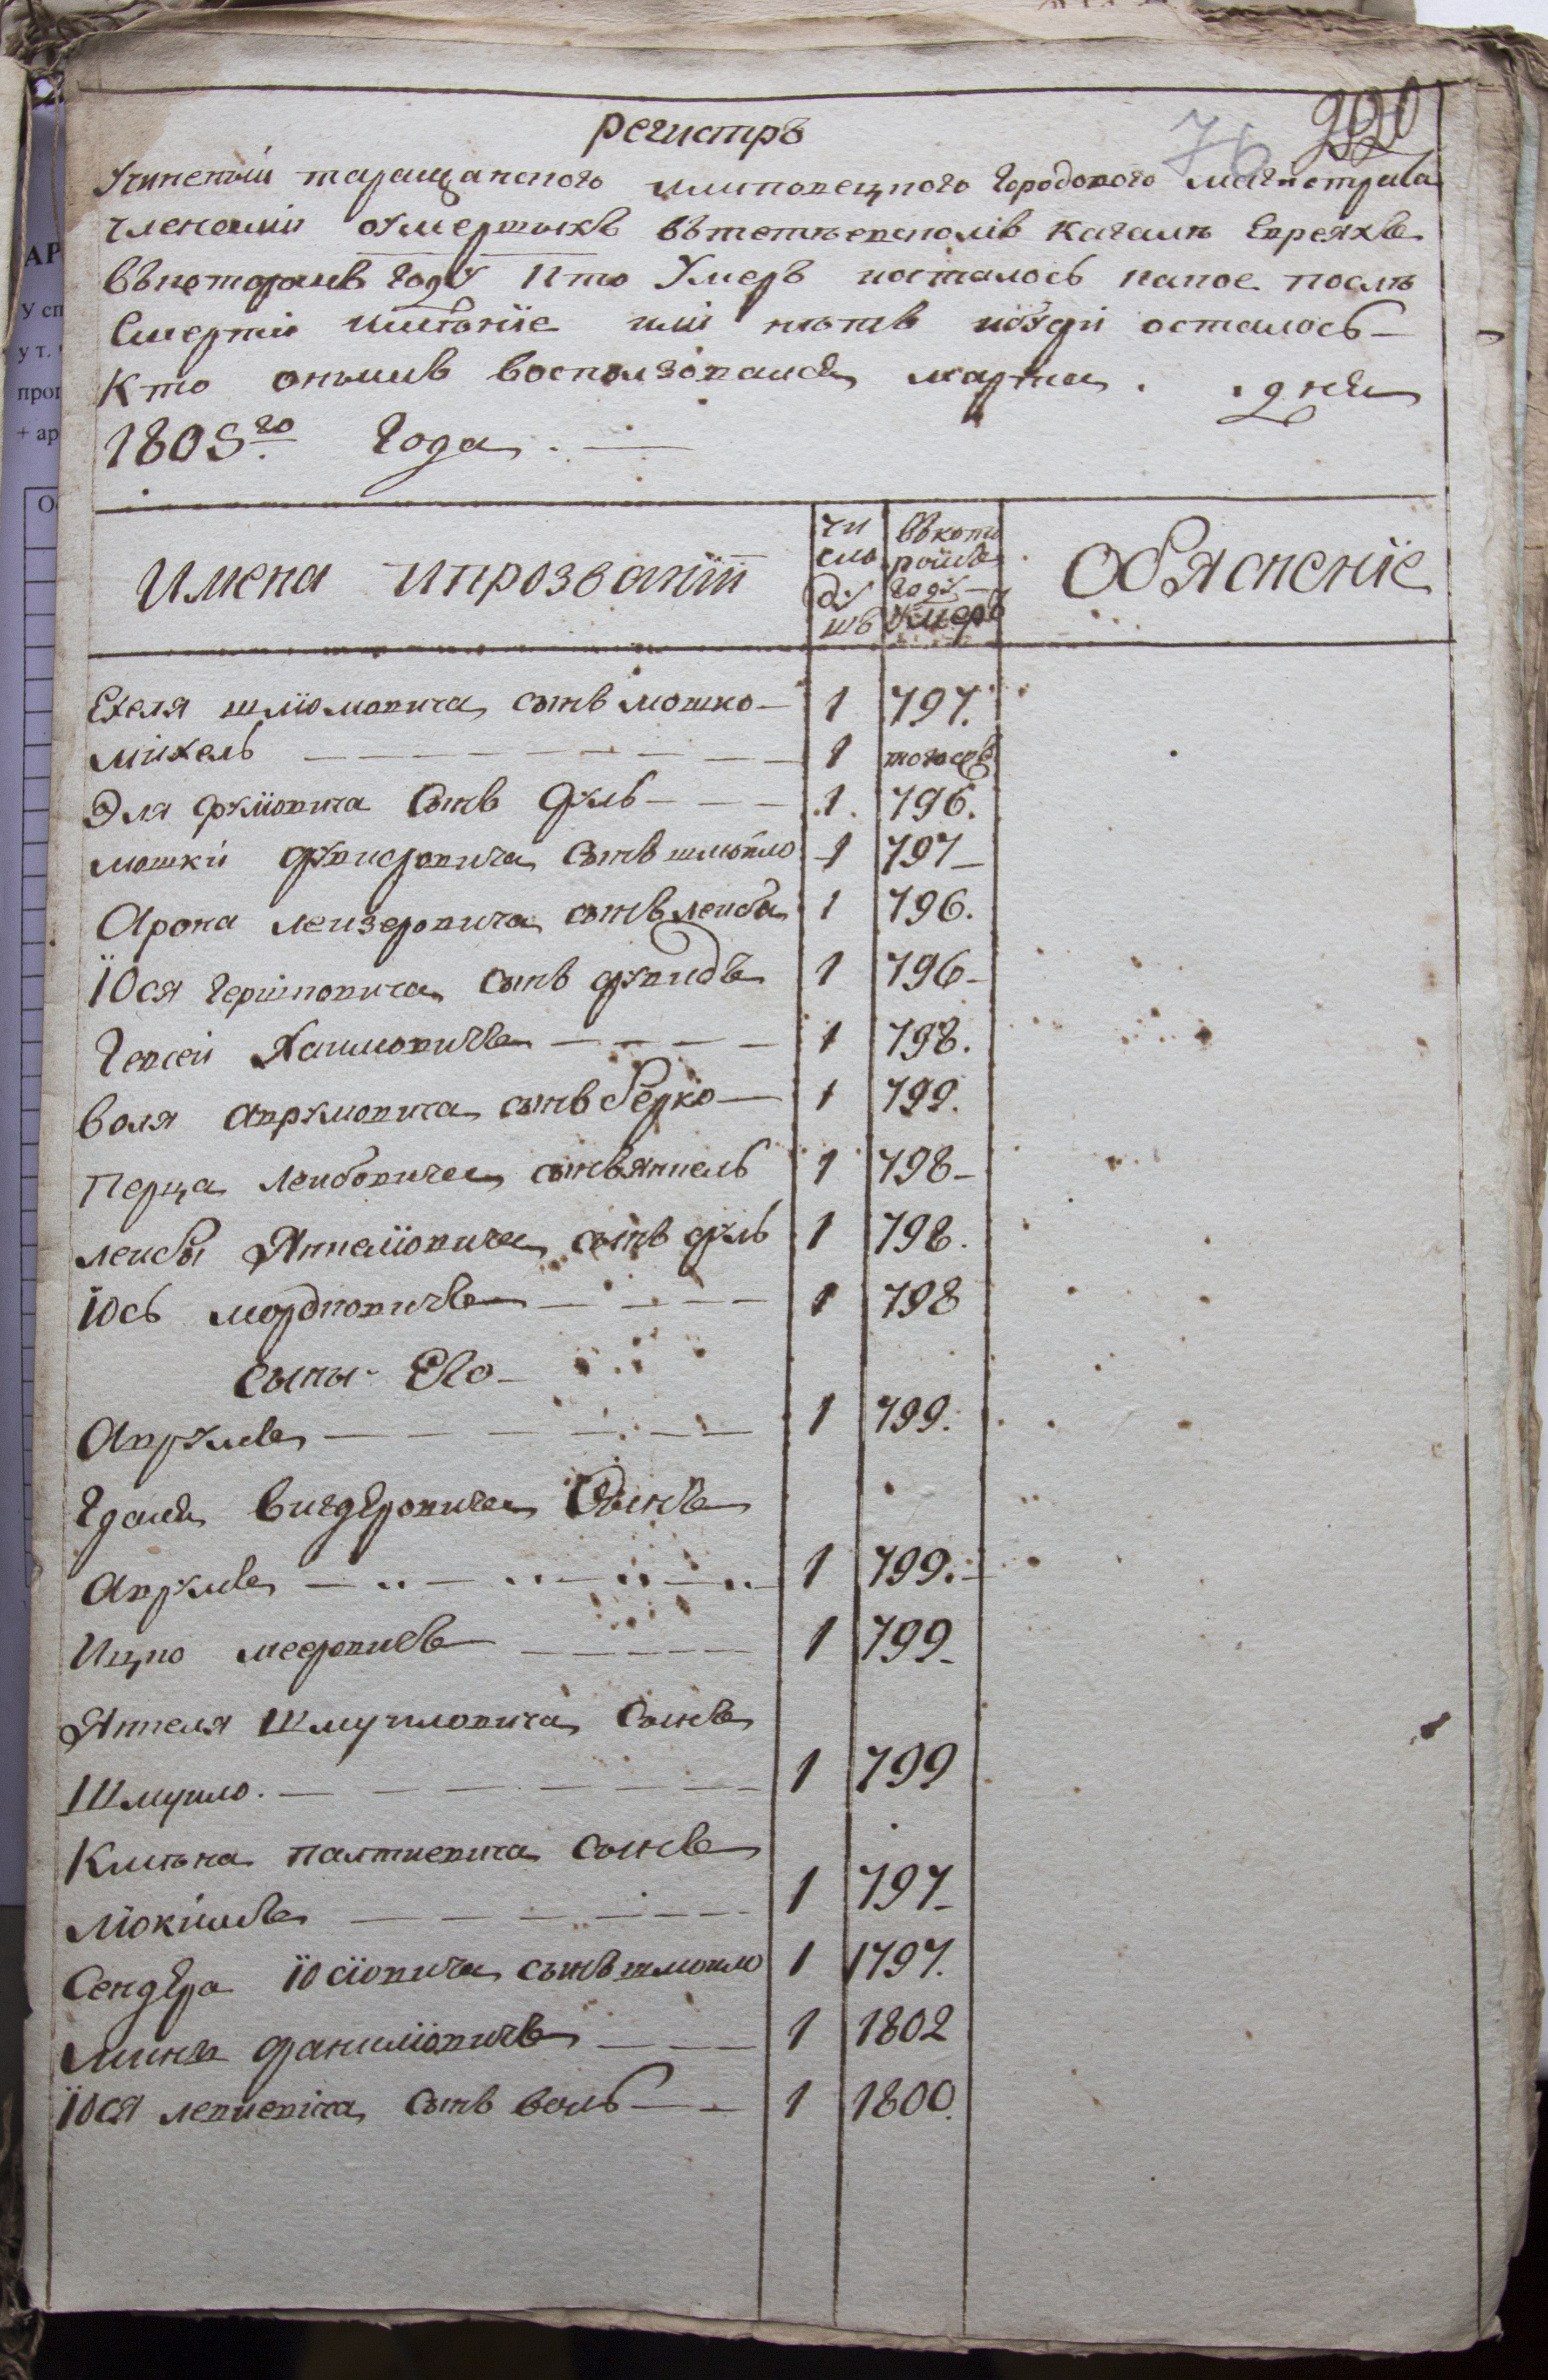 регистръ
76
220
Учиненый таращанского илиповецкого городового магистрата
членами о умершихъ въ тетиевсколи кагалѣ Евреяхъ
въ которомъ году и кто Умеръ и осталось какое послѣ
Смерти имѣніе или нѣтъ и буди осталось
Кто онымъ воспользовался марта . . дня
1805го Года
Имена и прозваній
чи
сло
ду
шъ
въ кото
ромъ
году
Умеръ
Обяснение
Ехеля шліомовича сынъ мошко 1 797.
міхель 1 тогожъ
Эля срулiовича Сынъ Сруль 1 796.
мошки дувидовича Сынъ шмойло 1 797
Арона леизеровича сынъ леиба 1 796.
Iося гершковича Сынъ дувидъ 1 796
Гевсей Хаимовичъ 1 798.
воля аврумовича сынъ берко 1 799.
Перца леибовича сынъ янкель 1 798
леибы Янкелiовича сынъ сруль 1 798.
Юсь мордковичъ 1 798
Сыны Его
Аврумъ 1 799.
Гдаля вигдеровича Сынъ
Аврумъ 1 799.
Ицко мееровичъ 1 799
Янкеля Шмуиловича Сынъ
Шмуило 1 799
Кильма палтиевича Сынъ
Мiокимъ 1 797
Сендера Iосiовича сынъ шмойло 1 1797.
Миня данилiовичъ 1 1802
Iося левиевича Сынъ воль 1 1800.